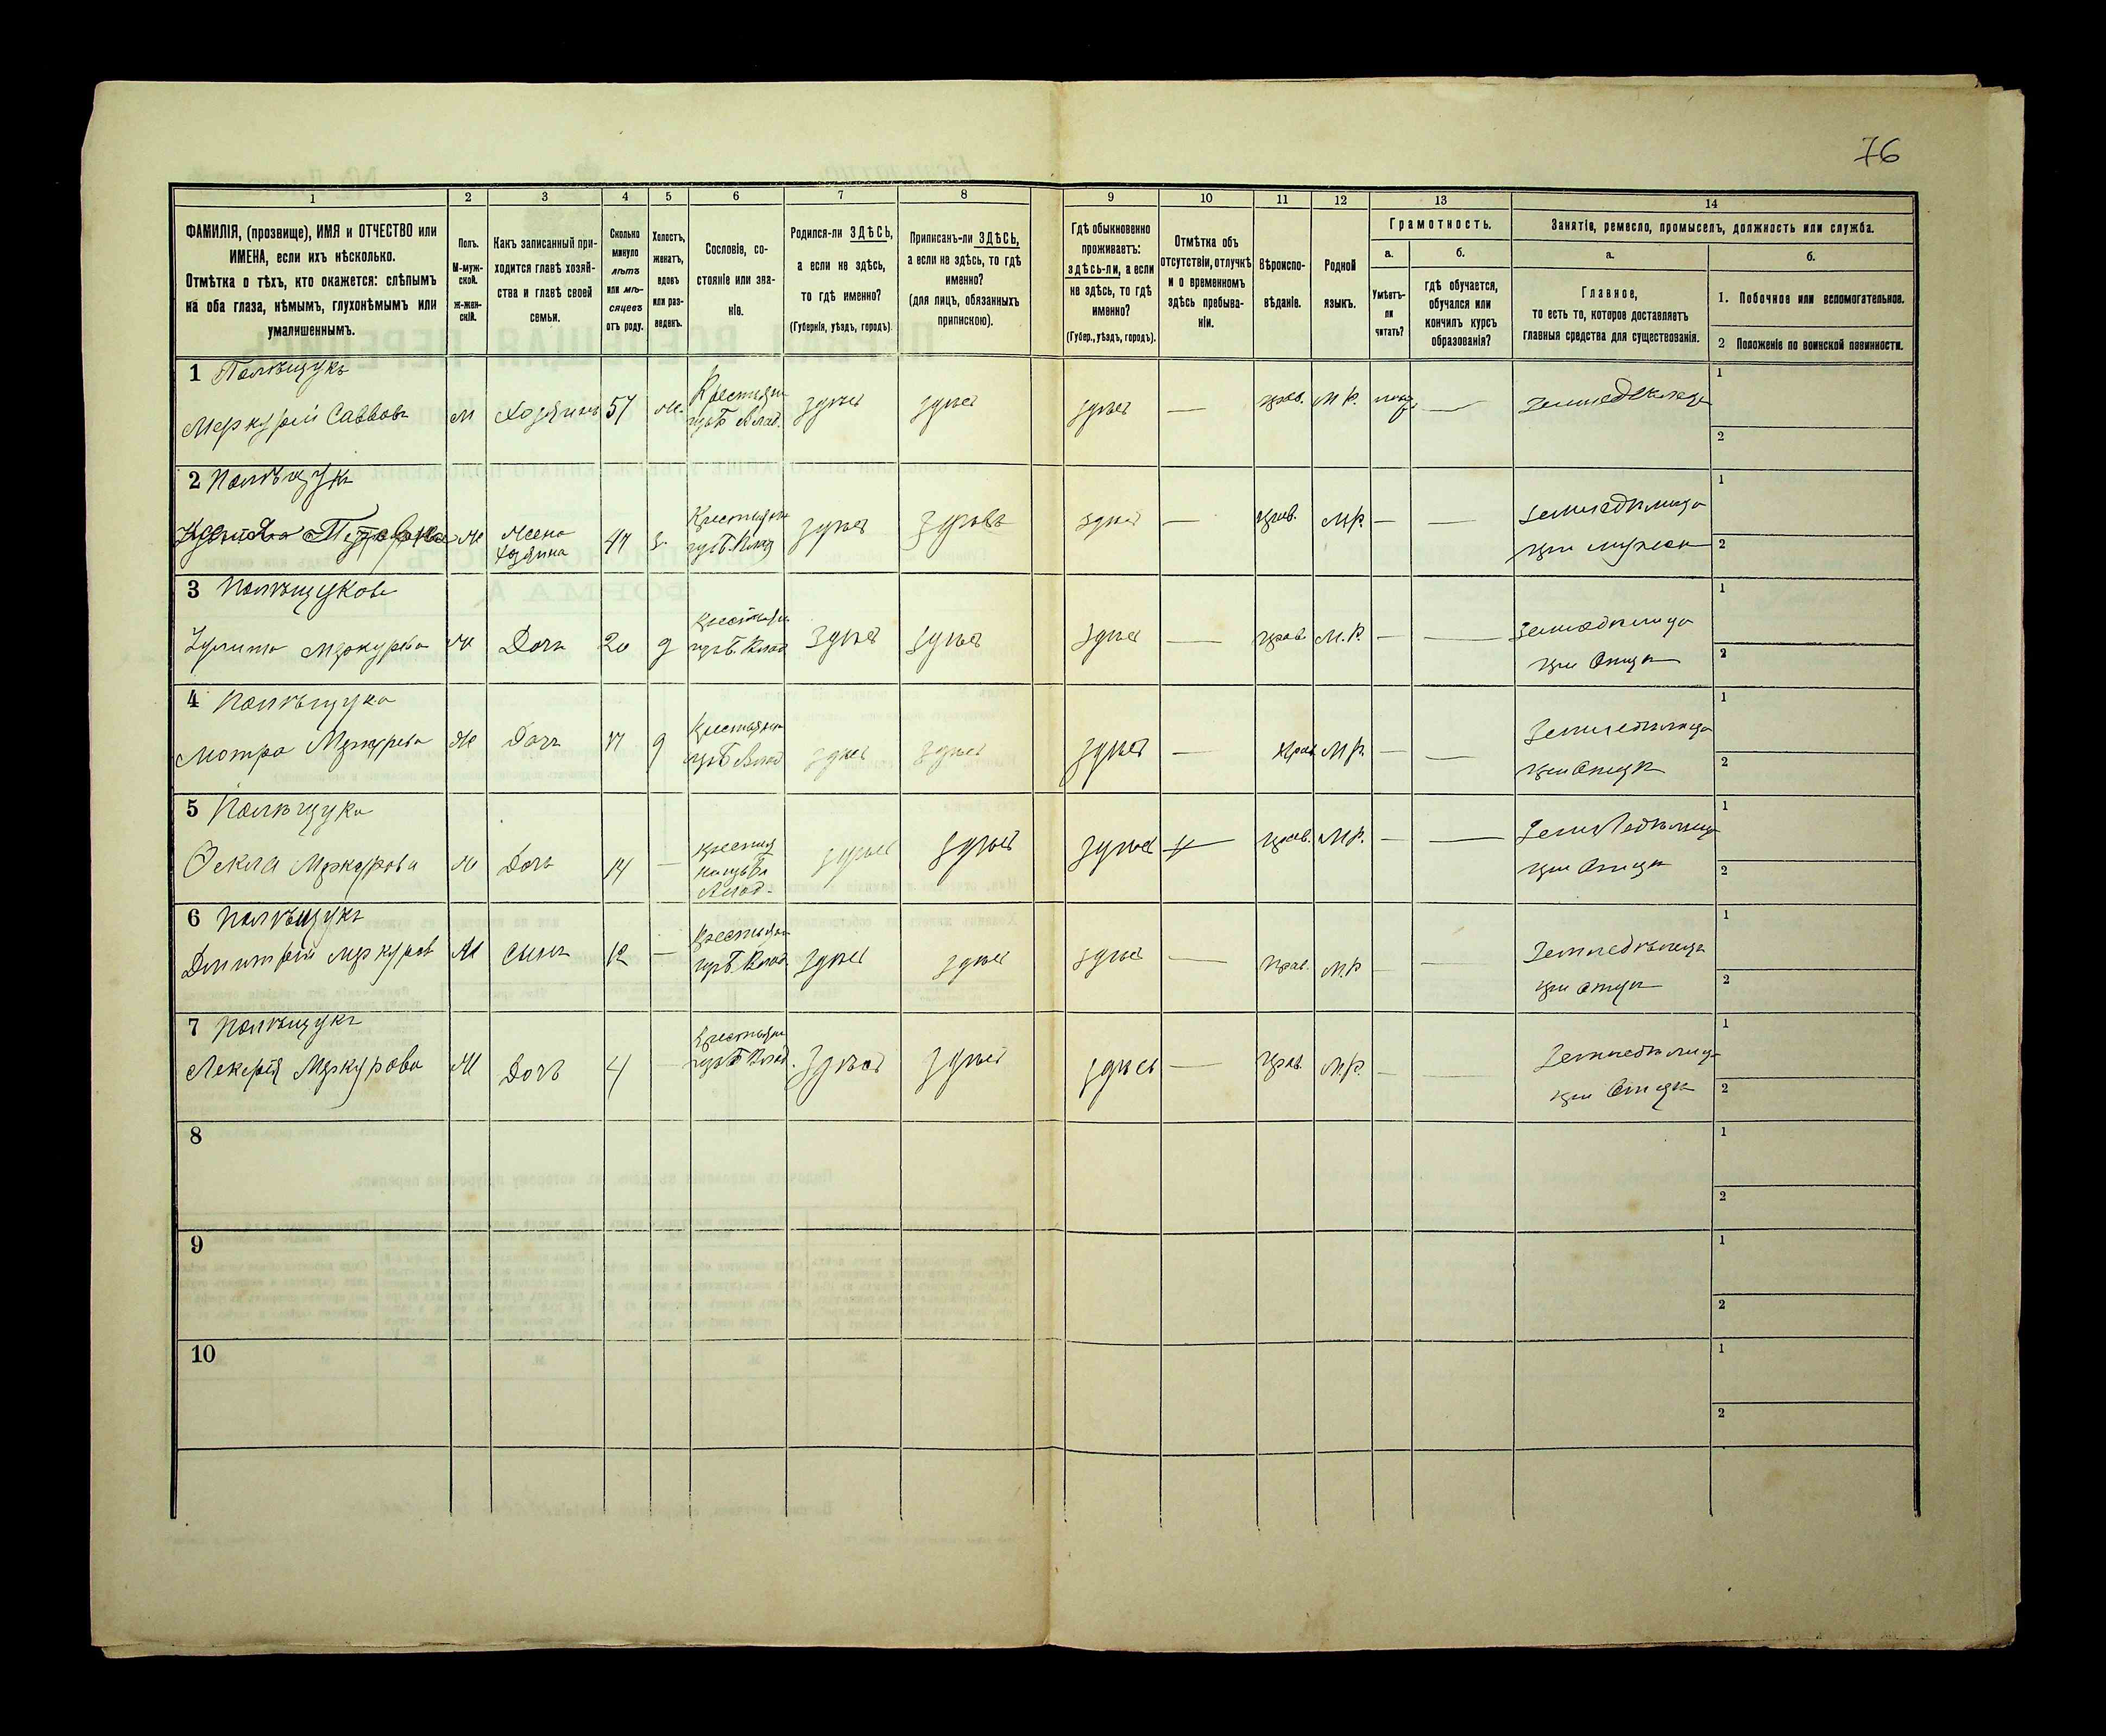 76
1 2 3 4 5 6 7 8 9 10 11 12 13 14
ФАМИЛІЯ, (прозвище), ИМЯ и ОТЧЕСТВО или
ИМЕНА, если ихъ нѣсколько.
Отмѣтка о тѣхъ, кто окажется: слѣпымъ
на оба глаза, нѣмымъ, глухонѣмымъ или
умалишеннымъ.
Полъ.
М-муж-
ской.
ж-жен-
скій.
Какъ записанный при-
ходится главѣ хозяй-
ства и главѣ своей
семьи.
Сколько
минуло
лѣтъ
или мѣ-
сяцевъ
отъ роду.
Холостъ,
женатъ,
вдовъ
или раз-
веденъ.
Сословіе, со-
стояніе или зва-
ніе.
Родился-ли ЗДѢСЬ,
а если не здѣсь,
то гдѣ именно?
(Губернія, уѣздъ, городъ).
Приписанъ-ли ЗДѢСЬ,
а если не здѣсь, то гдѣ
именно?
(для лицъ, обязанныхъ
припискою).
Гдѣ обыкновенно
проживаетъ:
здѣсь-ли, а если
не здѣсь, то гдѣ
именно?
(Губер., уѣздъ, городъ).
Отмѣтка объ
отсутствіи, отлучкѣ
и о временномъ
здѣсь пребыва-
ніи.
Вѣроиспо-
вѣданіе.
Родной
языкъ.
Грамотность.
а.
Умѣетъ-
ли
читать?
б.
гдѣ обучается,
обучался или
кончилъ курсъ
образованія?
Занятіе, ремесло, промыселъ, должность или служба.
а.
Главное,
то есть то, которое доставляетъ
главныя средства для существованія.
б.
1. Побочное или вспомогательное.
2 Положеніе по воинской повинности.
1 Полѣщукъ
Меркурій Саввовъ М Хозяинъ 57 Крестьян здѣсь здѣсь здѣсь — прав. М.Р. — земледѣлецъ
1
2
2 Полѣщукъ
Ж Жена хозяина з. Крестьян здѣсь здѣсь здѣсь — прав. М.Р. — — земледѣлица
при мужѣ
1
2
3 Полѣщукова
Улита Меркурова Ж Дочь 20 д Крестьян здѣсь здѣсь здѣсь — прав. М.Р. — — земледѣлица
при отцѣ
1
2
4 Полѣщука
Мотра Меркурева Ж Дочь 17 д Крестьян здѣсь здѣсь здѣсь — прав. М.Р. — — земледѣлица
при отцѣ
1
2
5 Полѣщука
Ѳекла Меркурова Ж Дочь 14 — здѣсь здѣсь здѣсь — прав. М.Р. — — земледѣлица
при отцѣ
1
2
6 Полѣщукъ
Дмитрій Меркуров М сынъ 12 — Крестьян здѣсь здѣсь здѣсь — прав. М.Р. — — земледѣлица
при отцѣ
1
2
7 Полѣщукъ
Меркурова Ж Дочь 4 — Крестьян здѣсь здѣсь здѣсь — прав. М.Р. — — земледѣлица
при отцѣ
1
2
8
1
2
9
1
2
10
1
2